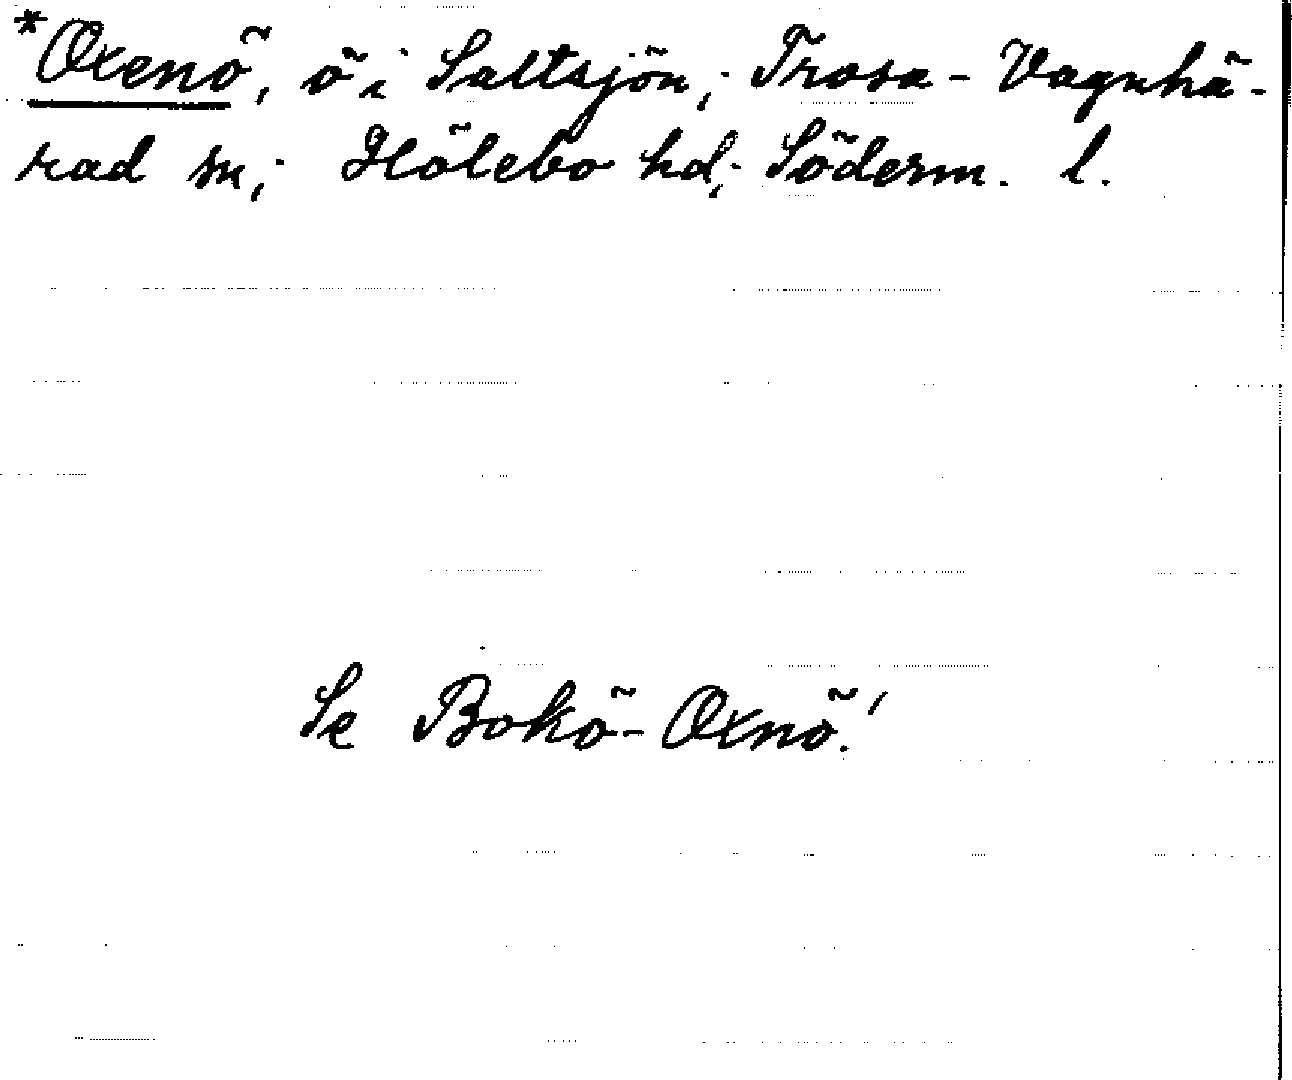 *Oxenö, ö i Saltsjön; Trosa-Vagnhä-
rad sn; Hölebo hd; Söderm. l.
Se Bokö-Oxnö!